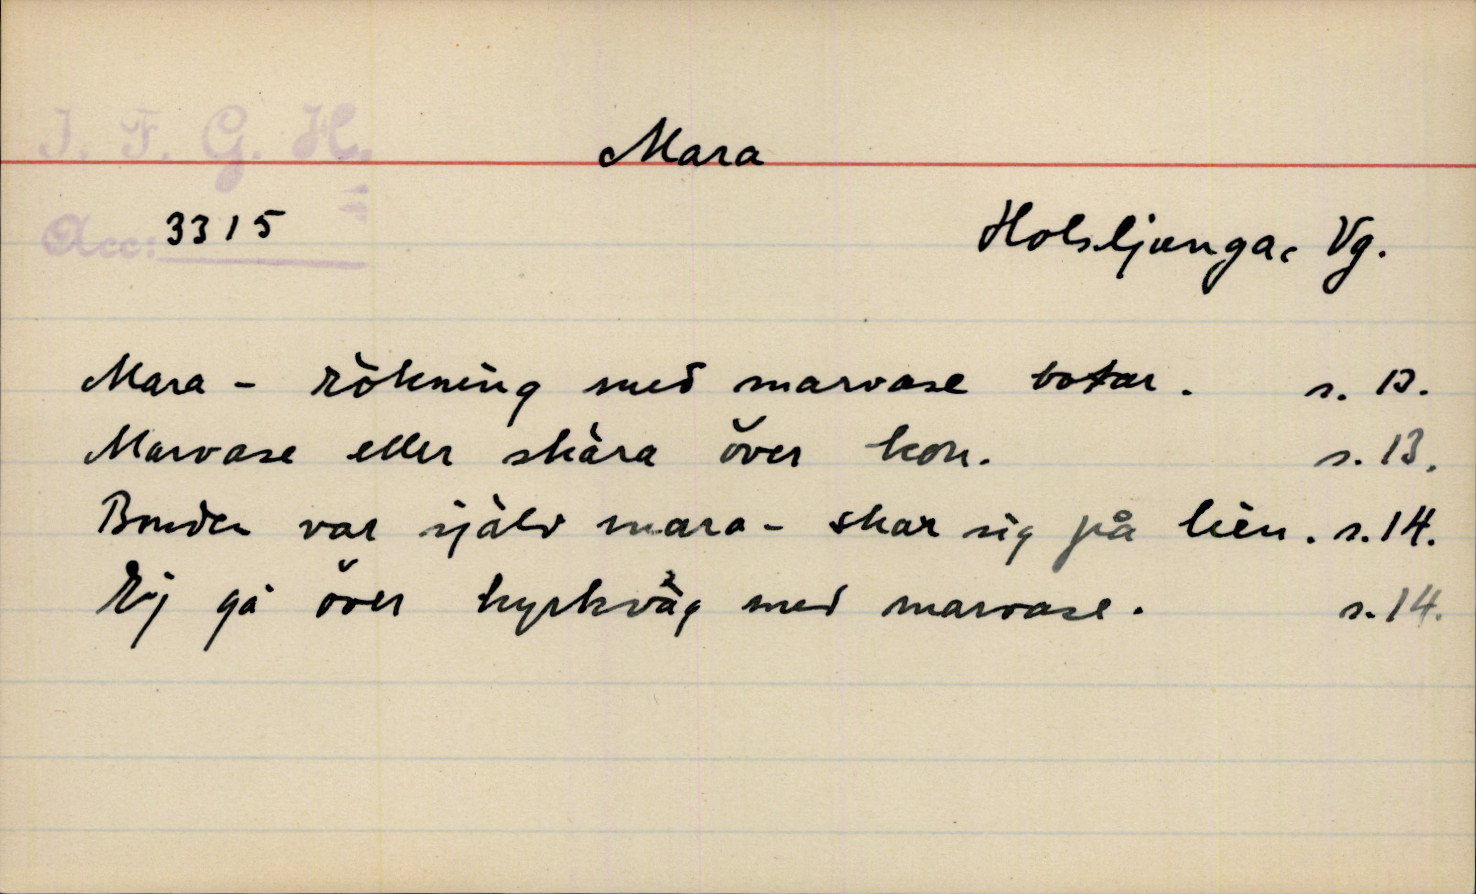 I. F. G. H.
Mara
Acc: 3315
Holsljunga, Vg.
Mara - rökning med marvase botar. s. 13.
Marvase eller skära över kon. s. 13.
Bonden var själv mara - skar sig på lien. s. 14.
Ej gå över kyrkväg med marvase. s. 14.